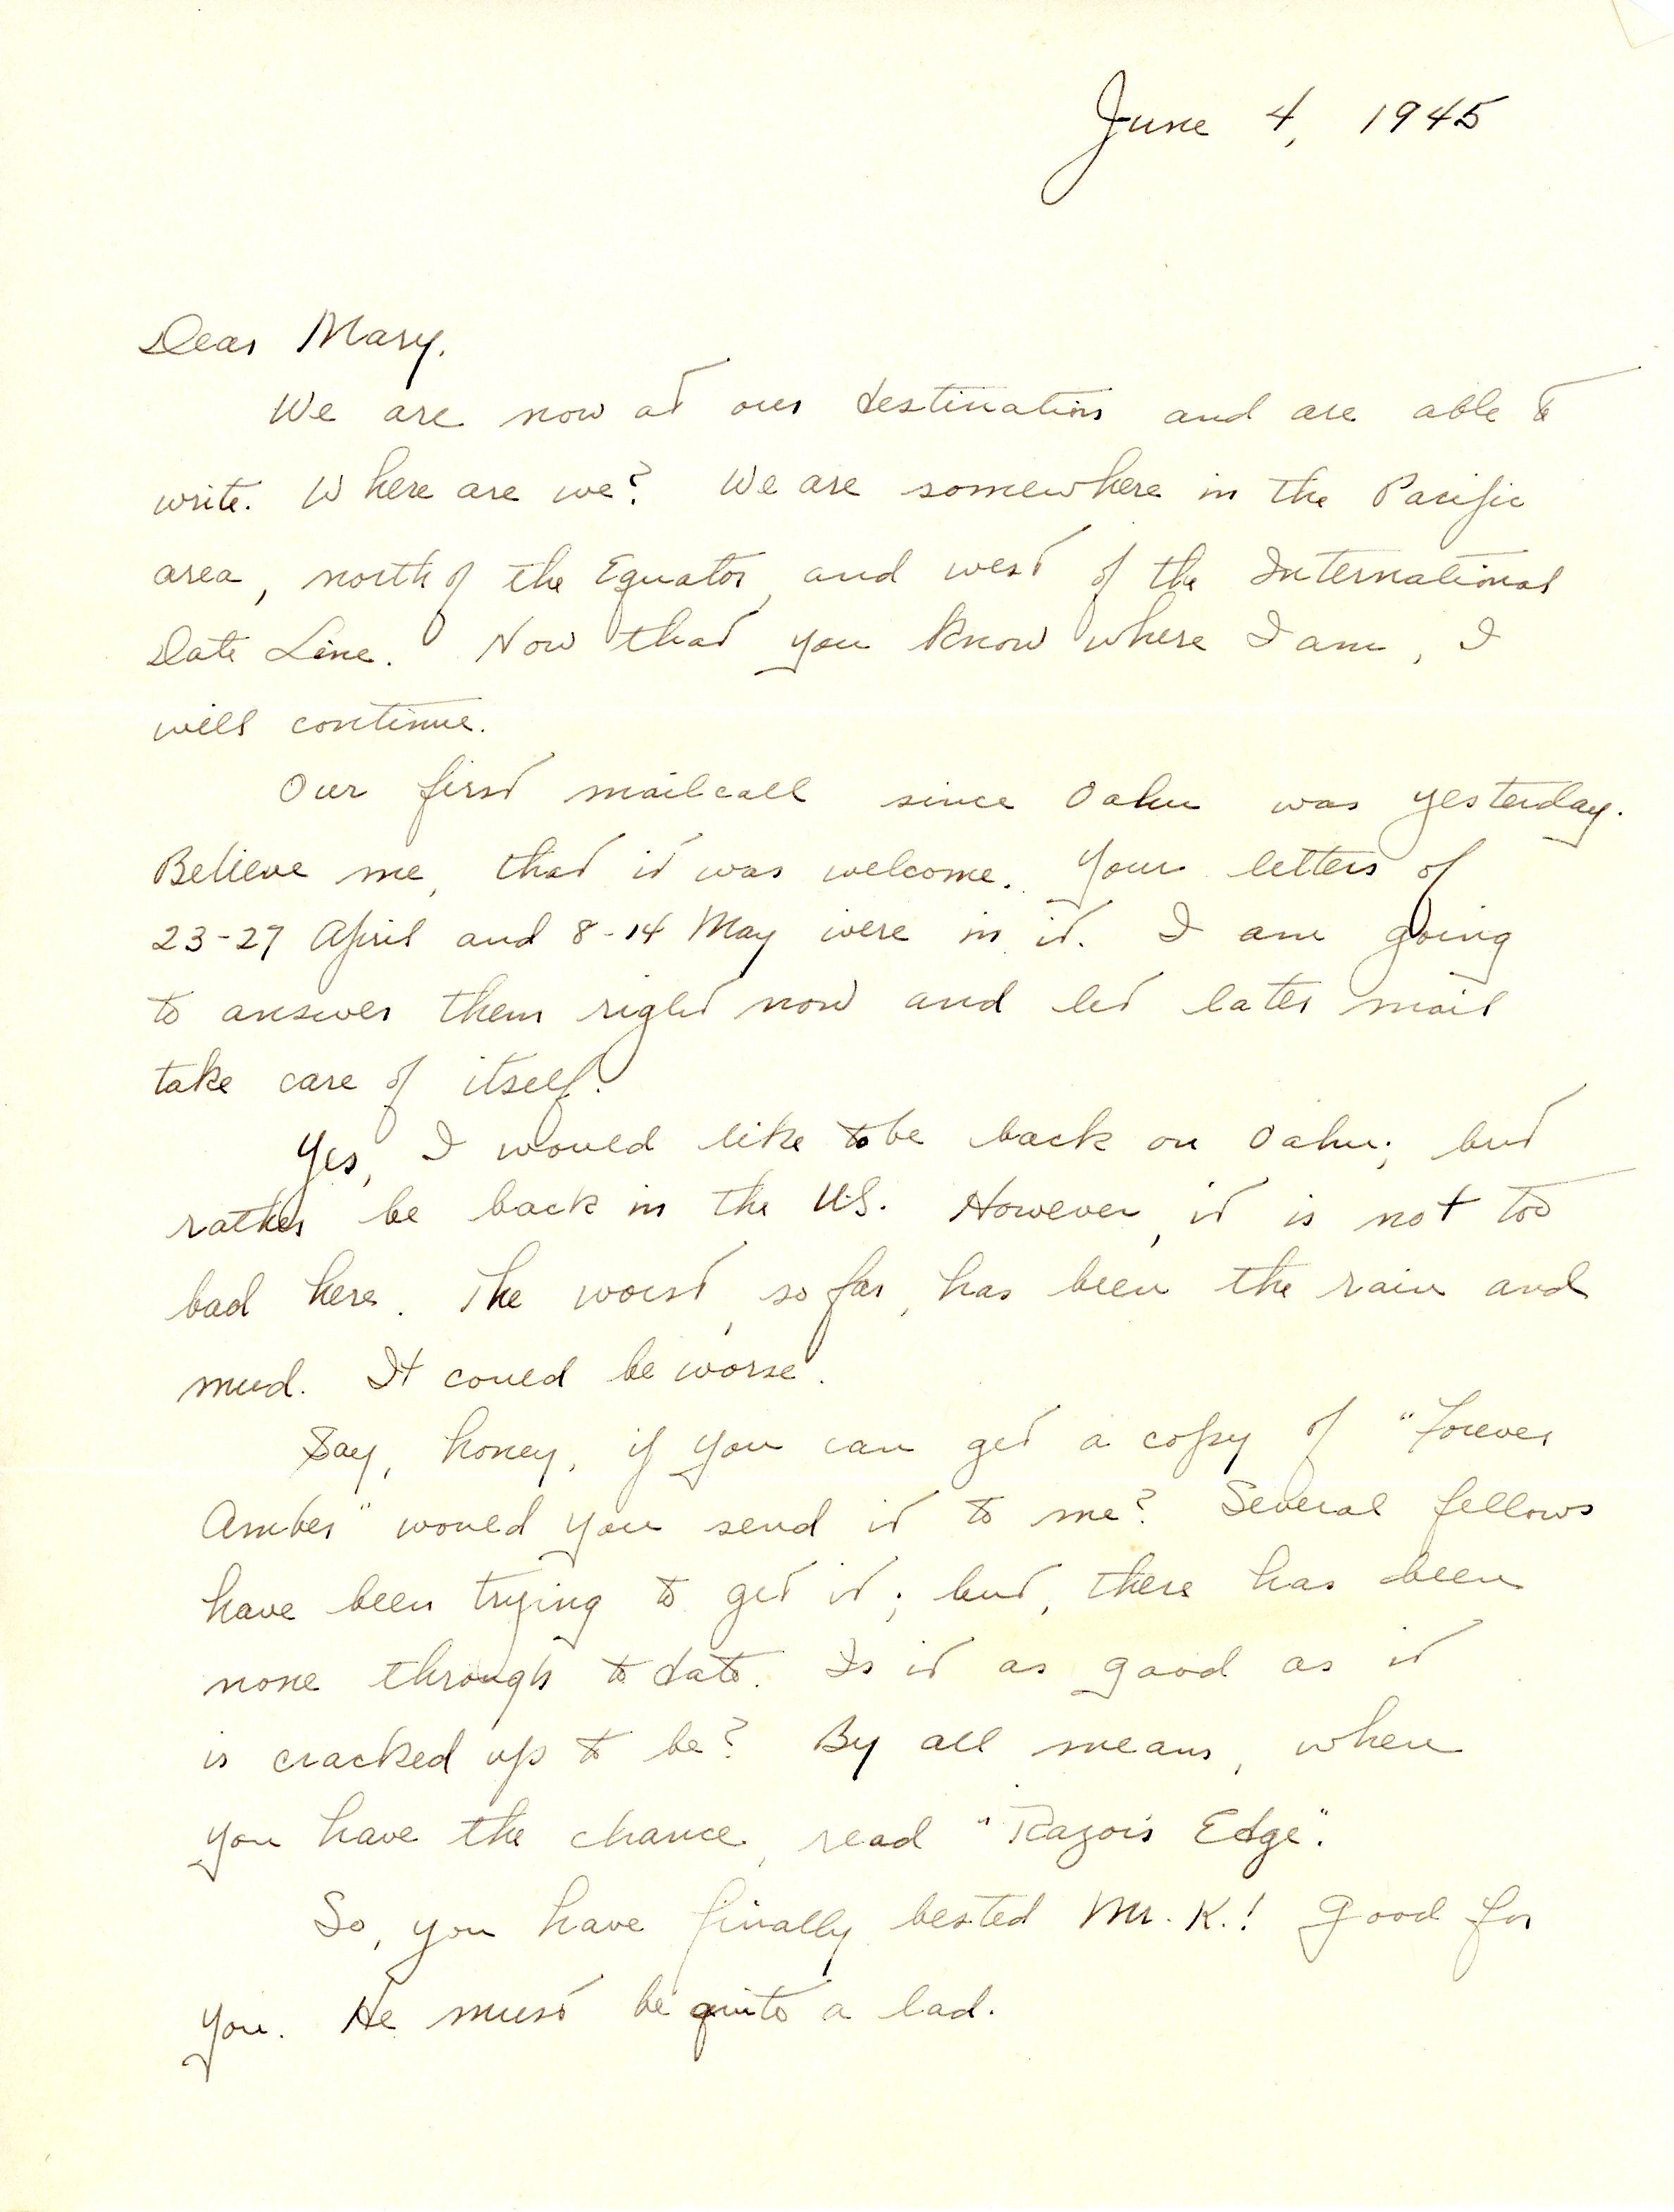 June 4, 1945
Dear Mary,
We are now at our destination and are able to
write. Where are we? We are somewhere in the Pacific
area, north of the Equator, and west of the International
Date Line. Now that you know where I am, I
will continue.
Our first mailcall since Oahu was yesterday.
Believe me, that it was welcome. Your letters of
23-27 April and 8-14 May were in it. I am going
to answer them right now and let later mail
take care of itself.
Yes, I would like to be back on Oahu; but
rather be back in the U.S. However, it is not too
bad here. The worst, so far, has been the rain and
mud. It could be worse.
Say, honey, if you can get a copy of "Forever
Amber" would you send it to me? Several fellows
have been trying to get it; but, there has been
none through to date. Is it as good as it
is cracked up to be? By all means, when
you have the chance, read "Razor's Edge".
So, you have finally bested Mr. K.! Good for
you. He must be quite a lad.